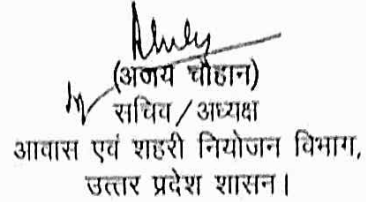 (अजय चौहान)
सचिव/अध्यक्ष
आवास एवं शहरी नियोजन विभाग,
उत्तर प्रदेश शासन।